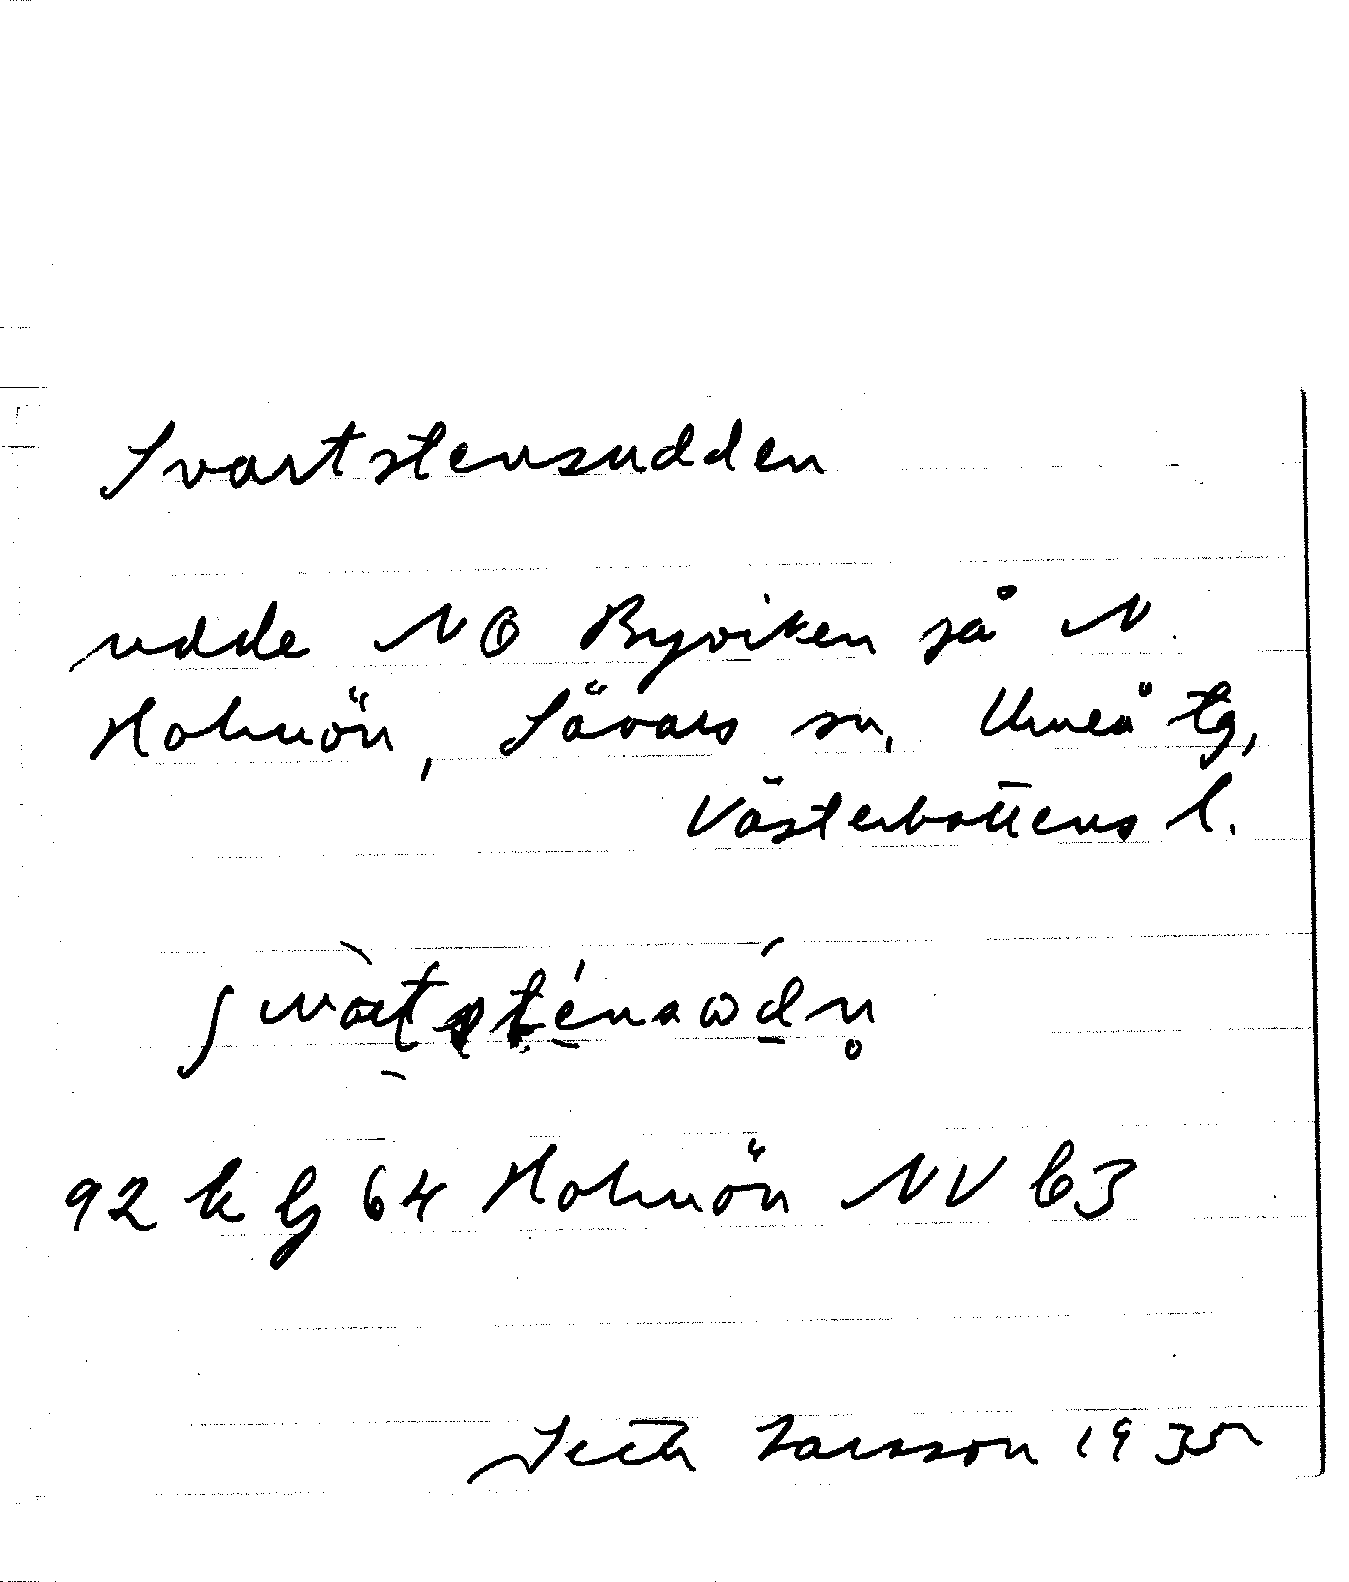 Svartstensudden
udde NO Byviken på N
Holmön, Sävars sn, Umeå tg,
Västerbottens l.
92 k G 64 Holmön NV b3
Seth Larsson 1935